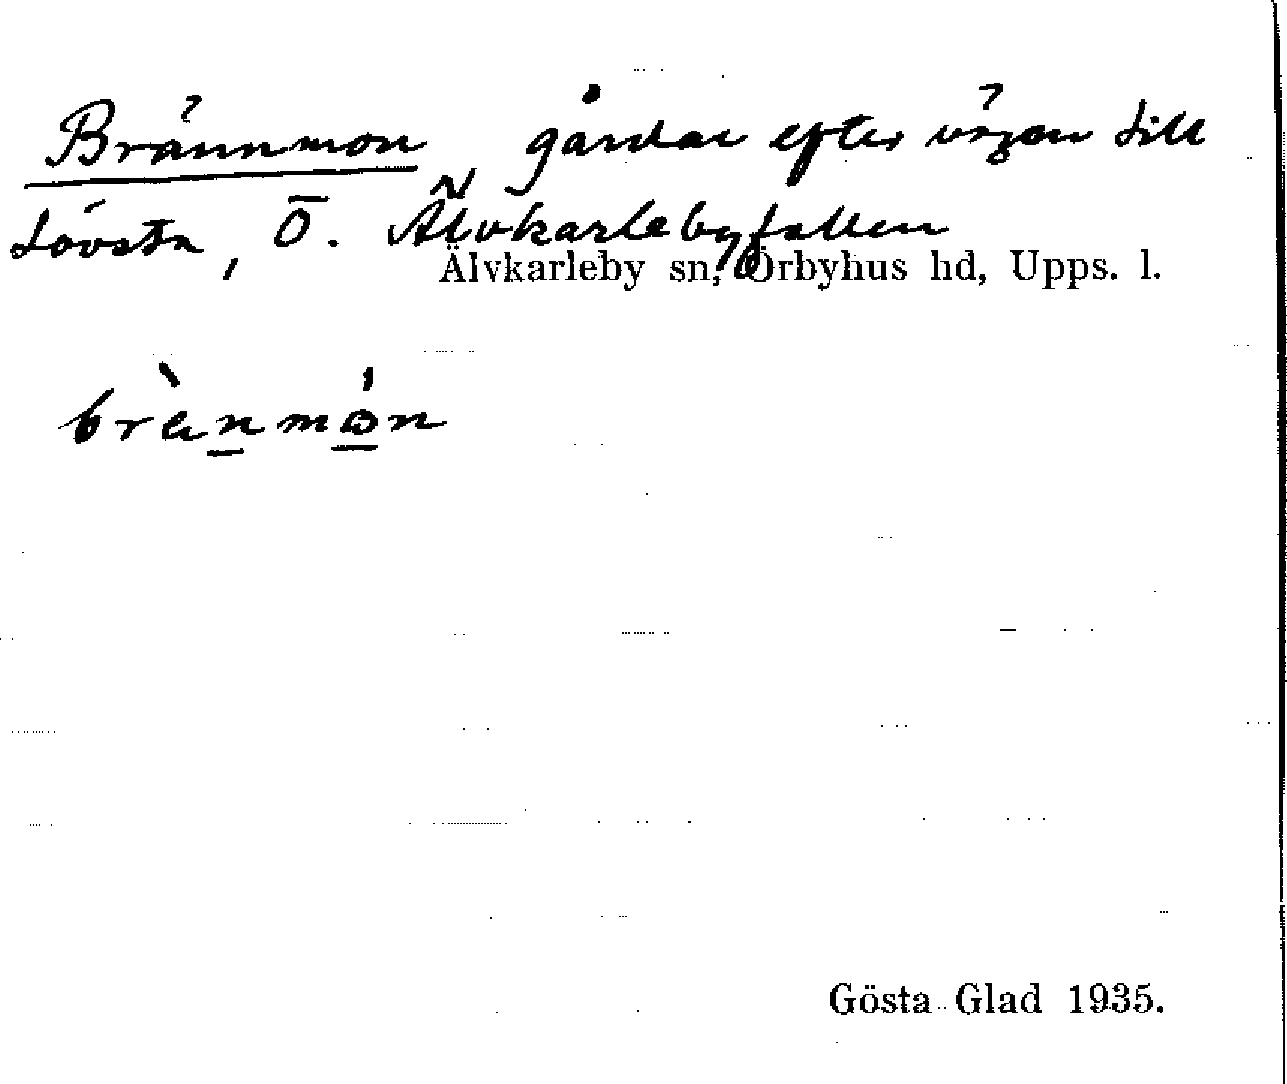 Brännmon gårdar efter vägen till
Lövsta, Ö. Älvkarlebyfallen
Älvkarleby sn, Örbyhus hd, Upps. l.
brànmón
Gösta Glad 1935.